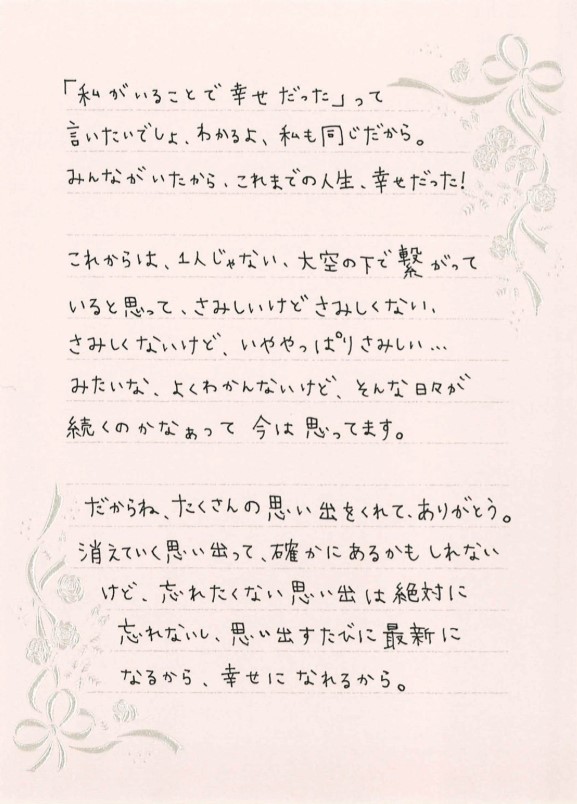 「私がいることで幸せだった」って
言いたいでしょ、わかるよ、私も同じだから。
みんながいたから、これまでの人生、幸せだった!
これからは、1人じゃない、大空の下で繋がって
いると思って、さみしいけどさみしくない、
さみしくないけど、いややっぱりさみしい…
みたいな、よくわかんないけど、そんな日々が
続くのかなぁって今は思ってます。
だからね、たくさんの思い出をくれて、ありがとう。
消えていく思い出って、確かにあるかもしれない
けど、忘れたくない思い出は絶対に
忘れないし、思い出すたびに最新に
なるから、幸せになれるから。